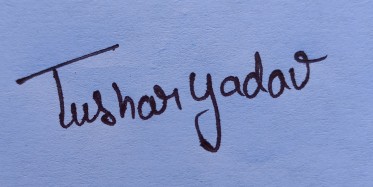 Tushar yadav